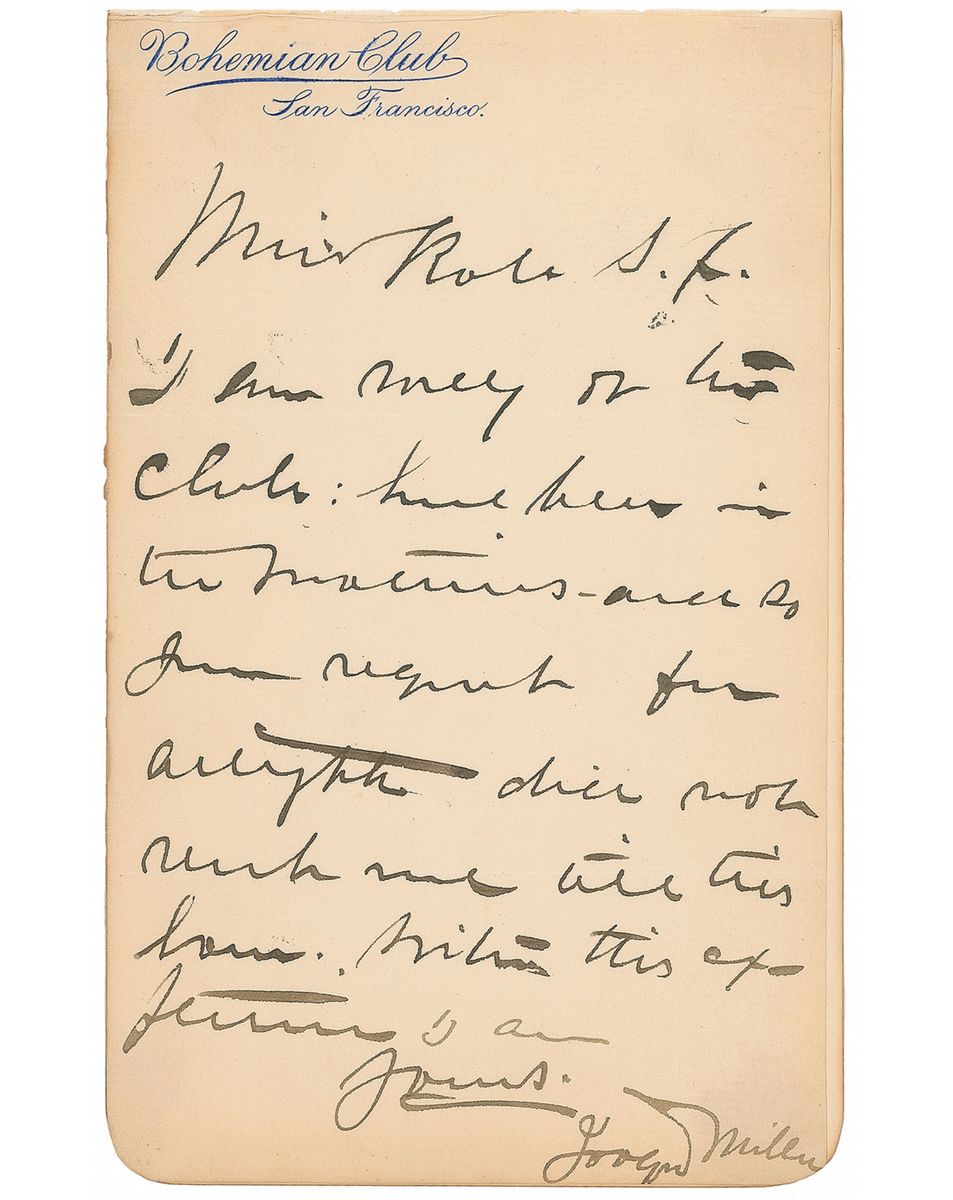 Bohemian Club
San Francisco.
Miss Kate S. F.
I am only at this
Club: have been in
the Mountains - and so
your request for
did not
reach me till this
hour. With this ex
I am
Yours.
Joaquin Miller